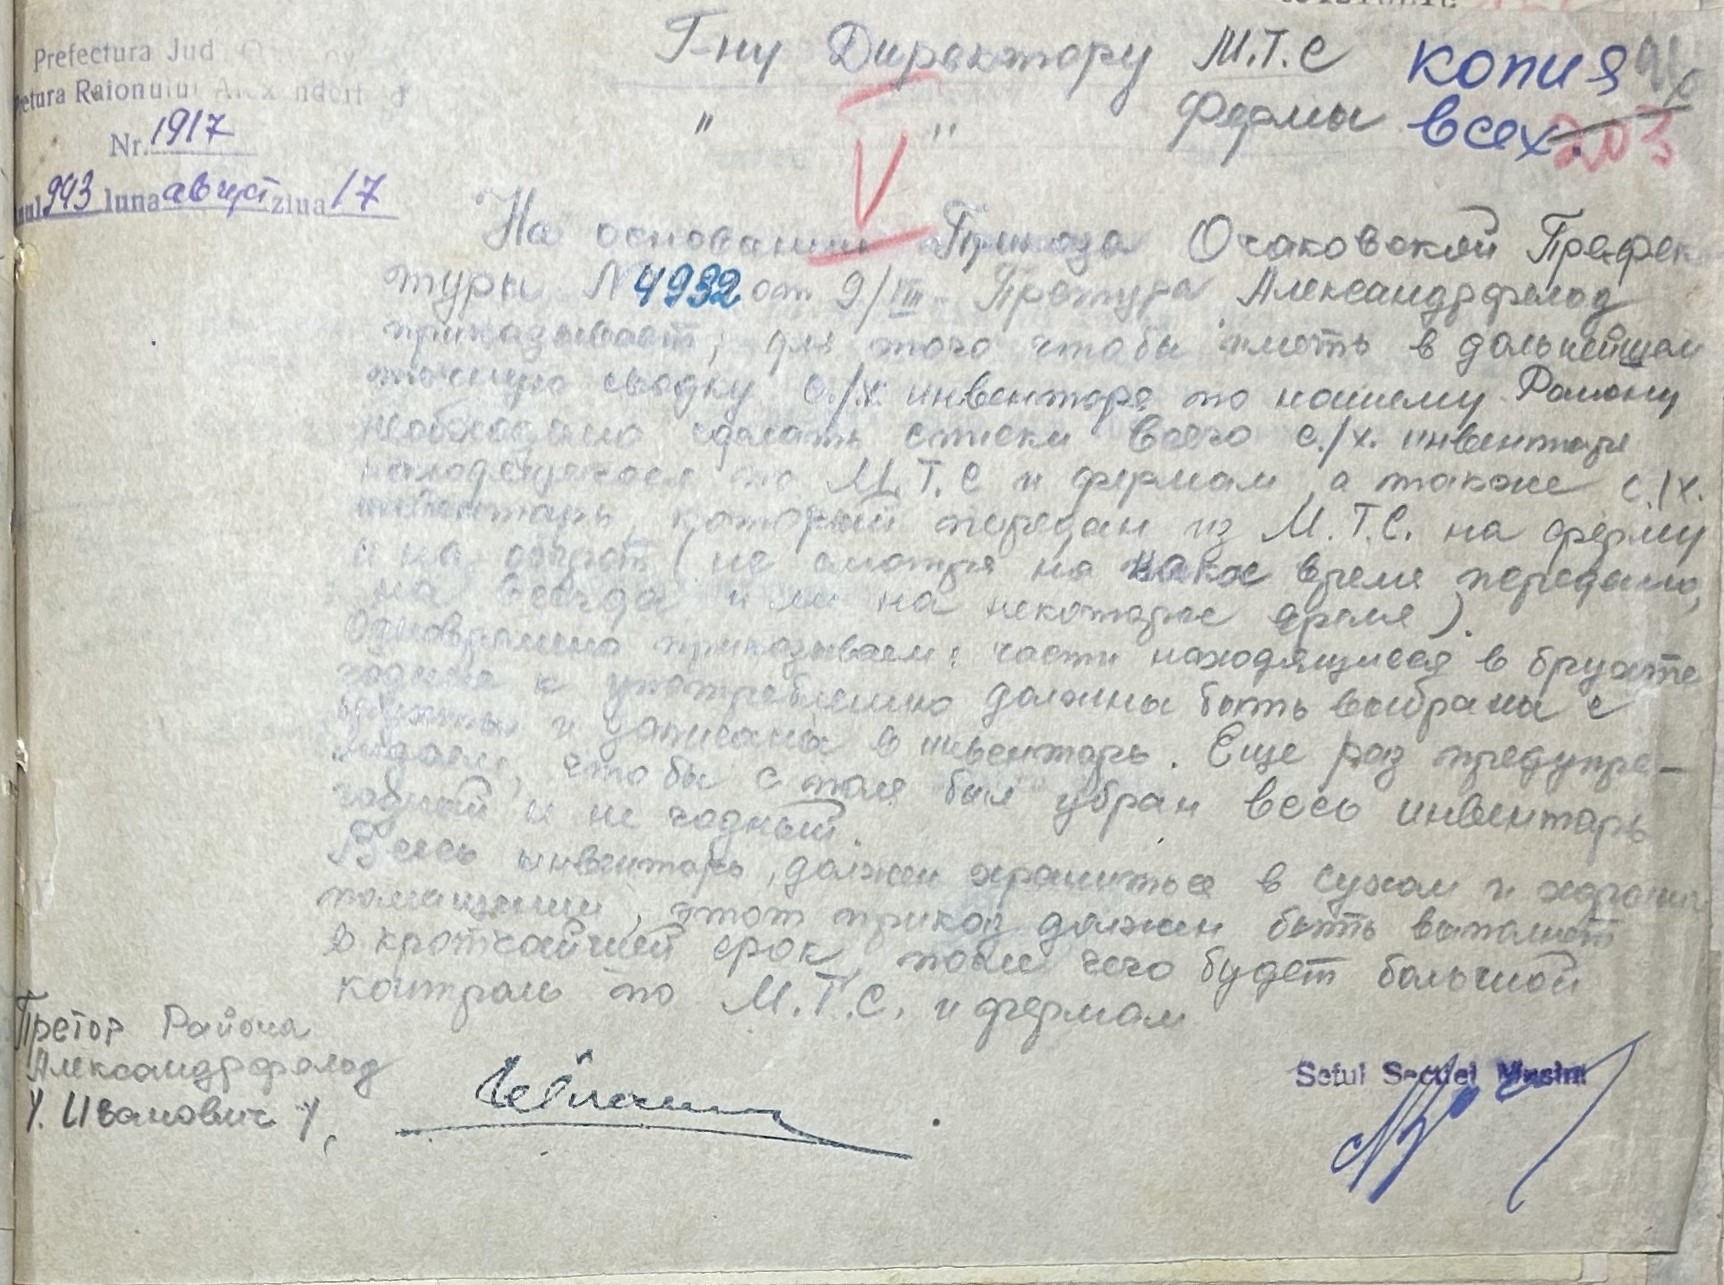 Prefectura Jud
Г-ну Директору М.Т.С копия
Raionului
" " Фермы всех. 203
Nr. 1917
943 luna август ziua 17
V
На основании Приказа Очаковской Префек
туры N 4932 от 9/VIII Претура Александрфельд
приказывает; для того чтобы иметь в дальнейшем
точную сводку с./х. инвентаря по нашему Району
необходимо сделать списки всего с./х. инвентаря
находещегося по М.Т.С и фермам, а также с./х.
инвентарь, который передан из М.Т.С. на ферму
и на оборот (не смотря на какое время передано,
на всегда или на некоторое время).
Одновремено приказываем: части находящиеся в брухте
годные к употреблению должны быть выбраны с
брухты и записаны в инвентарь. Еще раз предупре-
ждаем, чтобы с поля был убран весь инвентарь
годный и не годный.
Весь инвентарь, должен храниться в сухом и хорошем
помещении, этот приказ должен быть выполнен
в кротчайший срок, после чего будет большой
контроль по М.Т.С. и фермам
Претор Района
Александрфельд
У. Иванович У,
Seful Sectiei